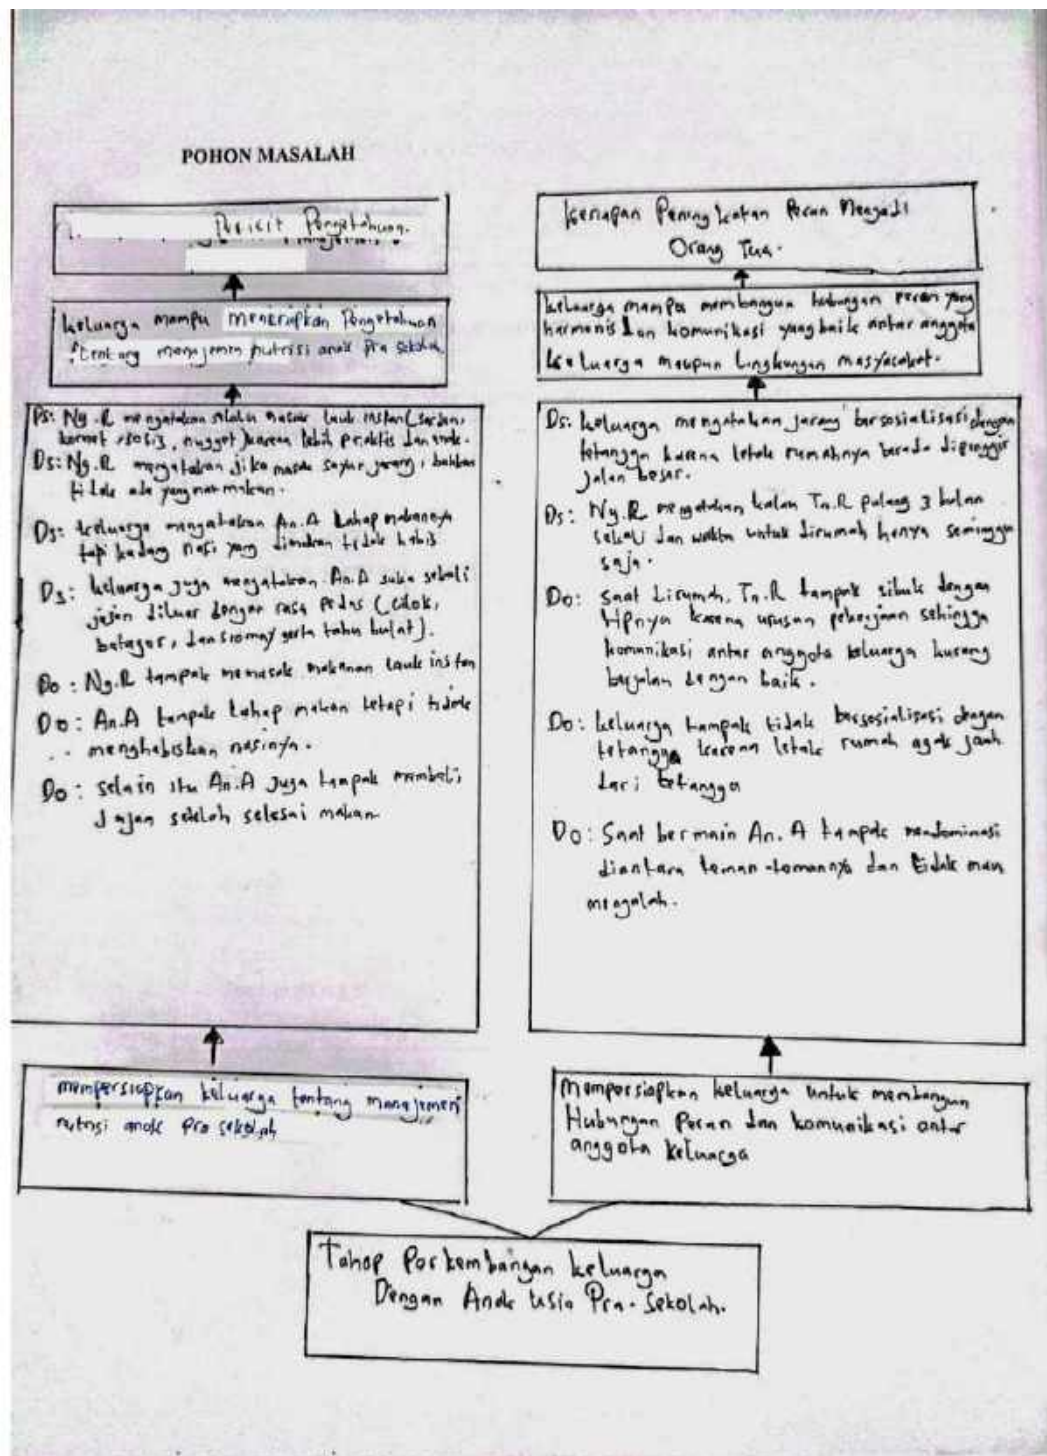 POHON MASALAH
Deficit Pengetahuan.
keluarga mampu menerapkan Pengetahuan
tentang manajemen nutrisi anak pra sekolah
Ds: Ny.R mengatakan selalu masak lauk instan (sarden,
kornet, sosis, nugget) karena lebih praktis dan enak.
Ds: Ny.R mengatakan jika masak sayur jarang, bahkan
tidak ada yang mau makan.
Ds: keluarga mengatakan An.A Lahap makannya
tapi kadang nasi yang dimakan tidak habis
Ds: keluarga juga mengatakan An.A suka sekali
jajan diluar dengan rasa Pedas (cilok,
batagor, dan siomay serta tahu bulat).
Do: Ny.R tampak memasak makanan lauk instan
Do: An.A tampak Lahap makan tetapi tidak
menghabiskan nasinya.
Do: selain itu An.A Juga tampak membeli
Jajan setelah selesai makan.
mempersiapkan keluarga tentang manajemen
nutrisi anak pra sekolah
Kesiapan Peningkatan Peran Menjadi
Orang Tua.
keluarga mampu membangun hubungan peran yang
harmonis dan komunikasi yang baik antar anggota
keluarga maupun Lingkungan masyarakat.
Ds: keluarga mengatakan jarang bersosialisasi dengan
tetangga karena letak rumahnya berada dipinggir
jalan besar.
Ds: Ny.R mengatakan kalau Tn.R pulang 3 bulan
sekali dan waktu untuk dirumah hanya seminggu
saja.
Do: Saat dirumah, Tn.R tampak sibuk dengan
HPnya karena urusan pekerjaan sehingga
komunikasi antar anggota keluarga kurang
berjalan dengan baik.
Do: keluarga tampak tidak bersosialisasi dengan
tetangga karena letak rumah agak jauh
dari tetangga
Do: Saat bermain An. A tampak mendominasi
diantara teman-temannya dan tidak mau
mengalah.
Mempersiapkan keluarga untuk membangun
Hubungan Peran dan komunikasi antar
anggota keluarga
Tahap Perkembangan keluarga
Dengan Anak Usia Pra-Sekolah.